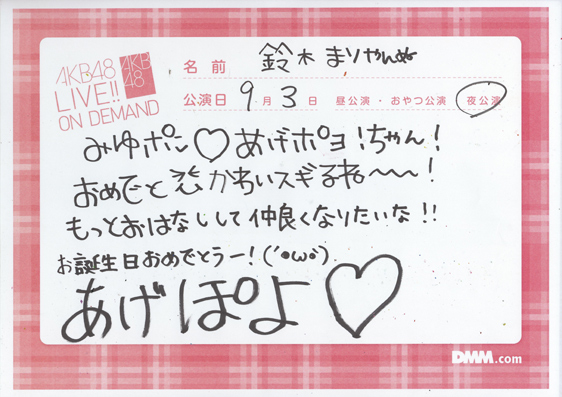 AKB48
LIVE!!
ON DEMAND
AKB
48
名前 鈴木まりやんぬ
公演日 9月3日 昼公演・おやつ公演 夜公演
みゆポン♡あげポヨ!ちゃん!
おめでと かわいスギるね〜〜!
もっとおはなしして仲良くなりたいな!!
お誕生日おめでとうー!(´•ω•`)
あげぽよ♡
DMM.com